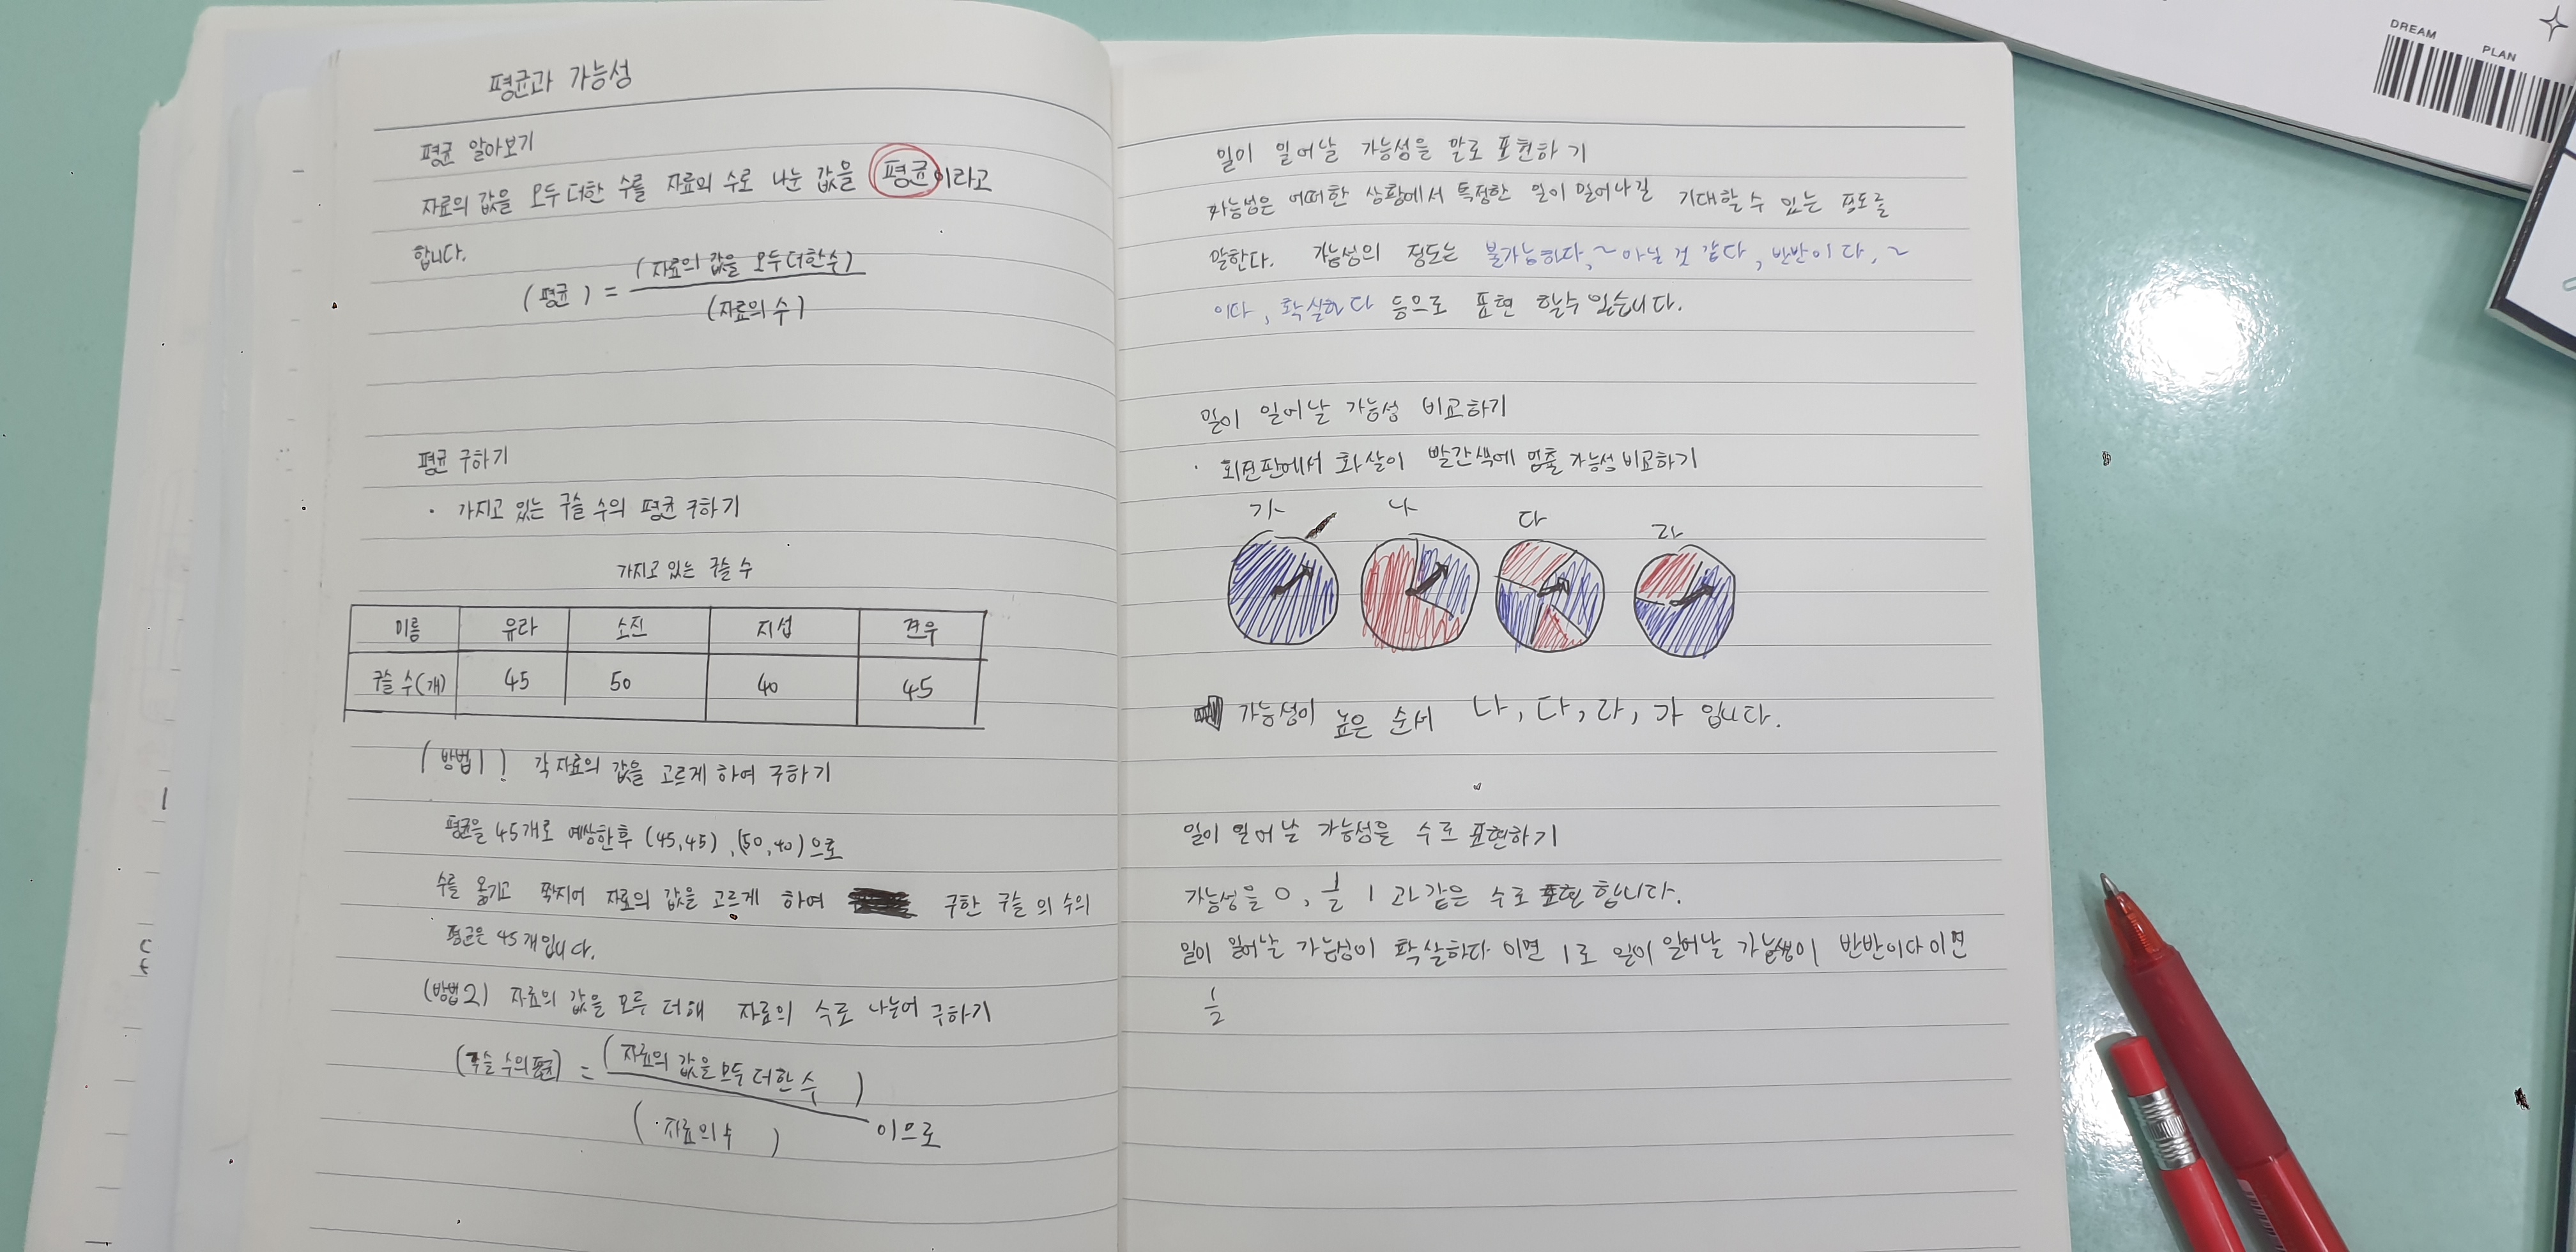 평균과 가능성
평균 알아보기
자료의 값을 모두 더한 수를 자료의 수로 나눈 값을 평균이라고
합니다.
(평균) = (자료의 값을 모두 더한 수)
(자료의 수)
평균 구하기
· 가지고 있는 구슬 수의 평균 구하기
가지고 있는 구슬 수
이름 유라 소진 지섭 견우
구슬 수(개) 45 50 40 45
(방법1) 각 자료의 값을 고르게 하여 구하기
평균을 45개로 예상한 후 (45,45), (50,40)으로
수를 옮기고 짝지어 자료의 값을 고르게 하여 구한 구슬의 수의
평균은 45개입니다.
(방법2) 자료의 값을 모두 더해 자료의 수로 나눈어 구하기
(구슬 수의 평균) = (자료의 값을 모두 더한 수)
(자료의 수) 이으로
일이 일어날 가능성을 말로 표현하기
가능성은 어떠한 상황에서 특정한 일이 일어나길 기대할 수 있는 정도를
말한다. 가능성의 정도는 불가능하다, ~아닐 것 같다, 반반이다, ~
이다, 확실하다 등으로 표현 할수 있습니다.
일이 일어날 가능성 비교하기
· 회전판에서 화살이 빨간색에 멈출 가능성 비교하기
가 나 다 라
가능성이 높은 순서 나, 다, 라, 가 입니다.
일이 일어날 가능성을 수로 표현하기
가능성을 0, 1 과 같은 수로 표현 합니다.
일이 일어날 가능성이 확실하다 이면 1로 일이 일어날 가능성이 반반이다 이면
1/2
DREAM PLAN